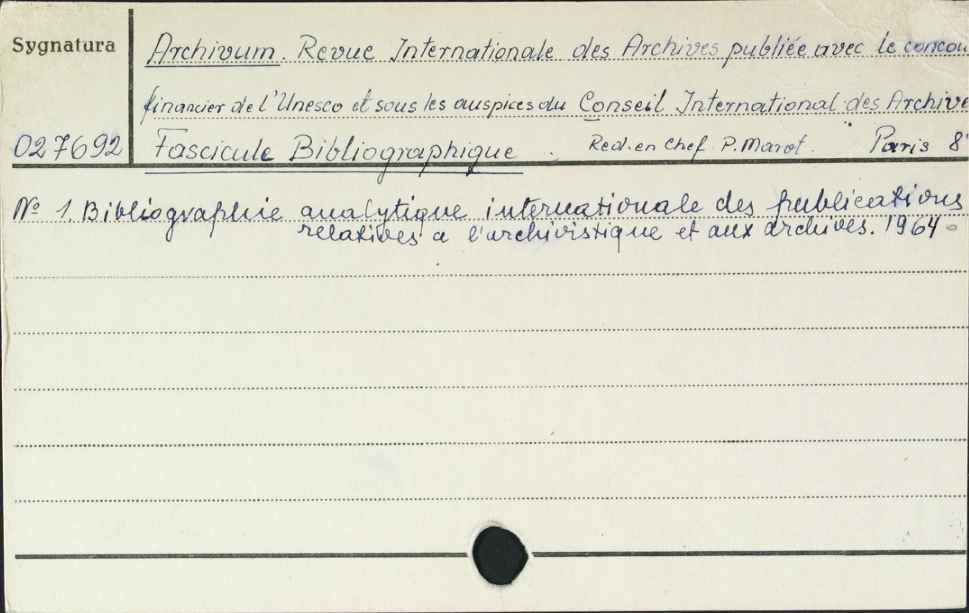 Sygnatura
Archivum. Revue Internationale des Archives publiée avec le concou
financier de l'Unesco et sous les auspices du Conseil International des Archive
027692 Fascicule Bibliographique. Red. en chef P. Marot. Paris 8°
№ 1. Bibliographie analytique internationale des publications
relatives a l'archivistique et aux archives. 1964.